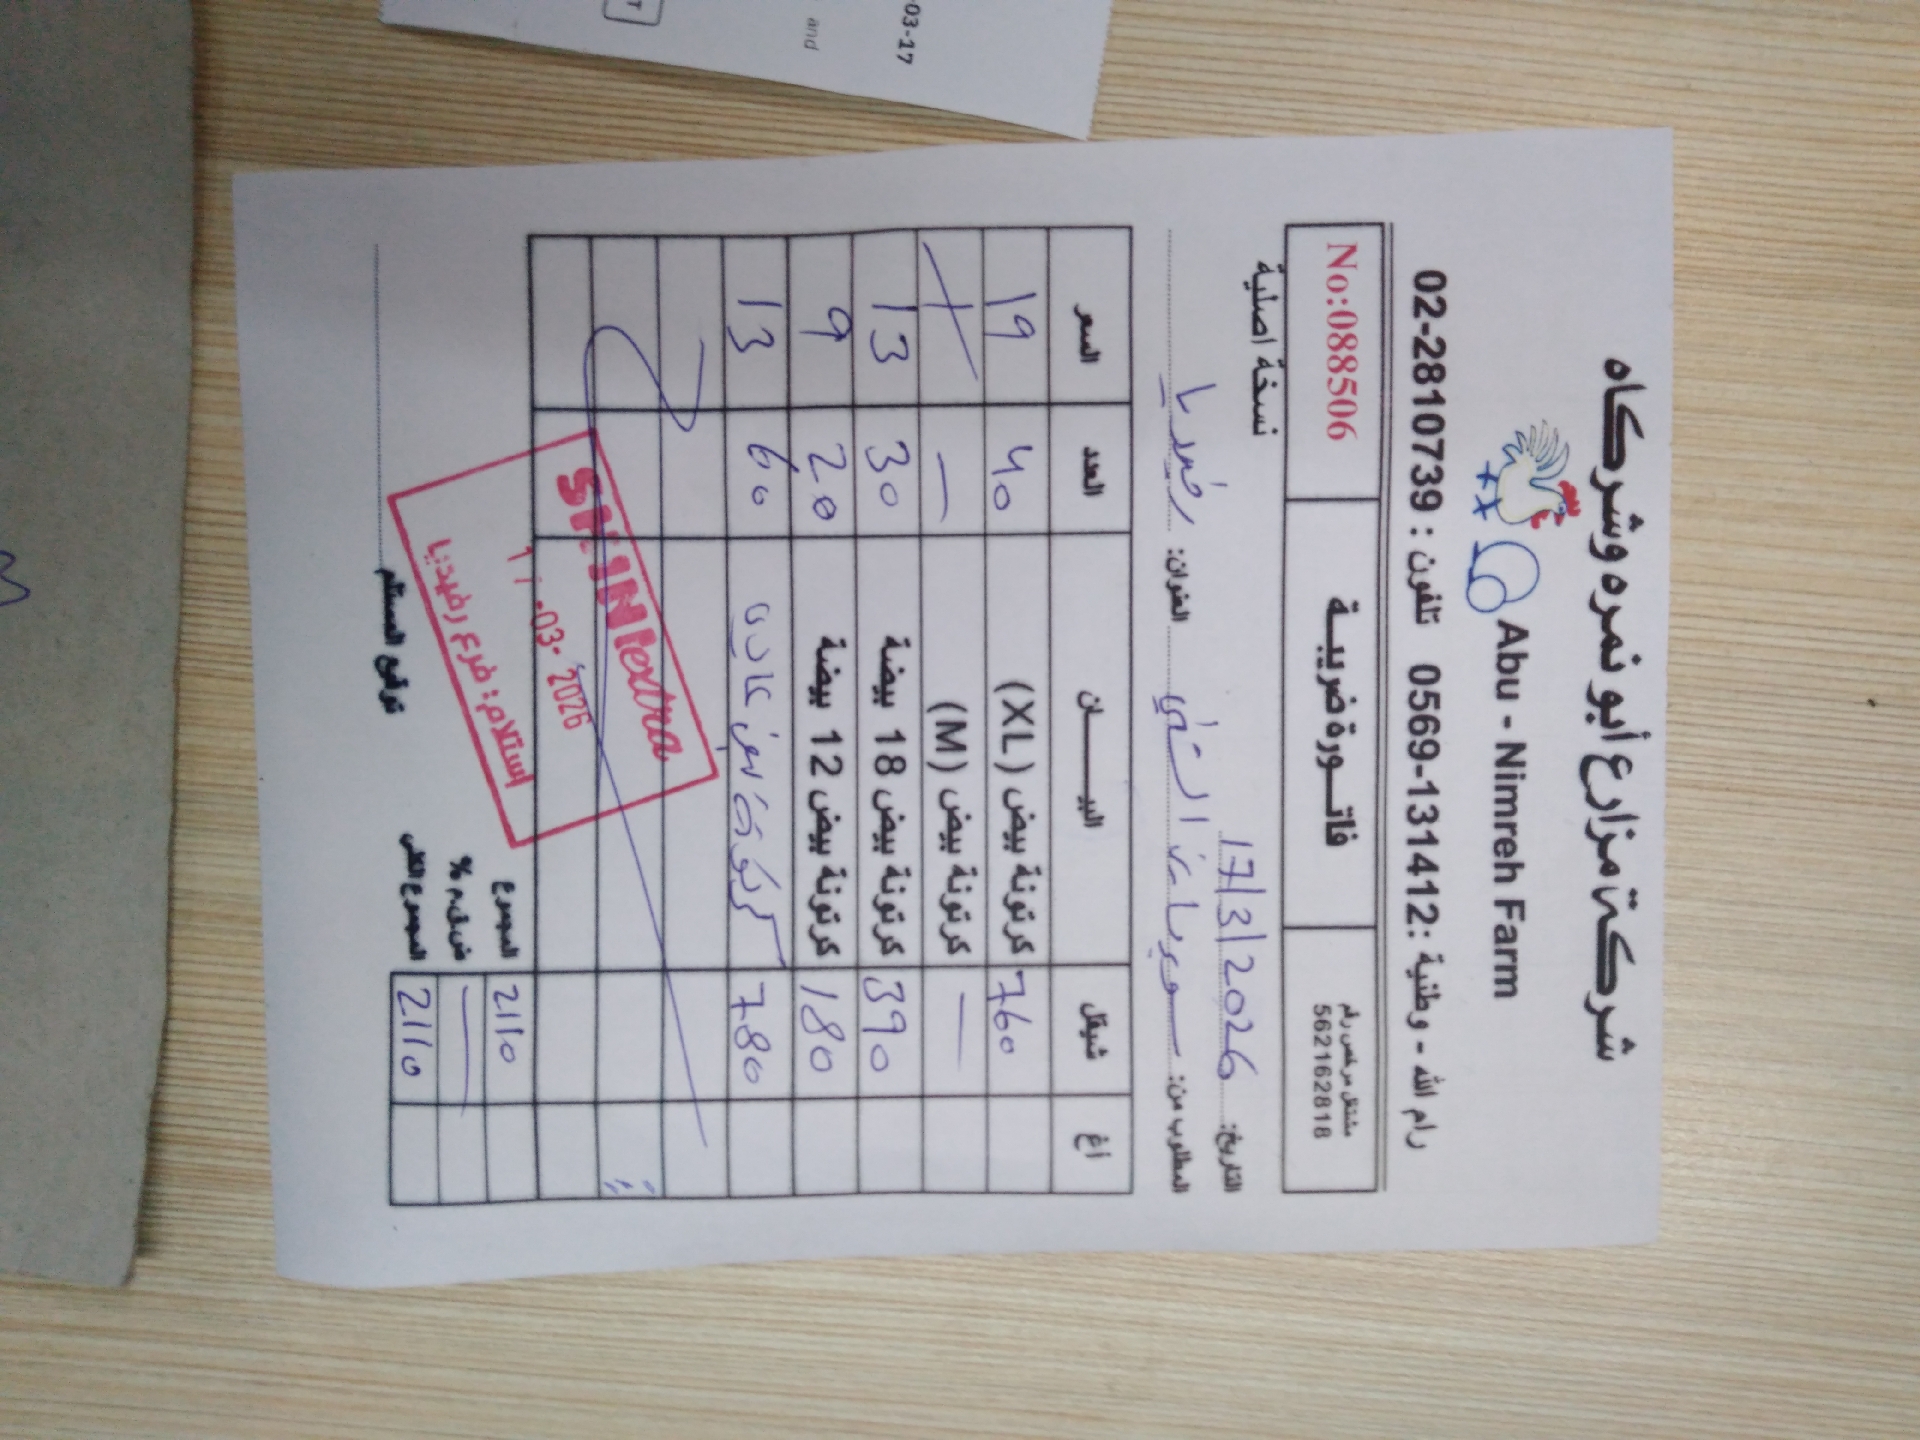 شركة مزارع أبو نمره وشركاه
Abu - Nimreh Farm
رام الله - وطنية : 0569-131412 تلفون : 02-2810739
مشتغل مرخص رقم
562162818
فاتـــورة ضريبـــة
No:088506
التاريخ: 17/3/2026
نسخة اصلية
المطلوب من: سوبر ماركت العنوان: رفيديا
أغ شيقل البيـــــان العدد السعر
760 كرتونة بيض (XL) 40 19
— كرتونة بيض (M) —
390 كرتونة بيض 18 بيضة 30 13
180 كرتونة بيض 12 بيضة 20 9
780 كرتونة بيض عادي 60 13
المجموع 2110
ض.ق.م % —
المجموع الكلي 2110
توقيع المستلم
extra
17 -03- 2026
إستلام: فرع رفيديا
-03-17
and
T